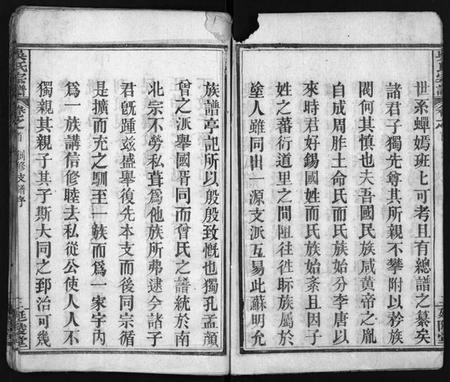 世系蟬嫣班七可考且有總譜之纂矣
諸君子獨先尊其所親不攀附以矜族
閥何其慎也夫吾國民族咸黃帝之胤
自成周胙土命氏而氏族始分李唐以
來時君好錫國姓而氏族始紊且因子
姓之蕃衍道里之間阻往往眎族屬於
塗人雖同出一源支派互易此蘇明允
族譜亭記所以殷殷致慨也獨孔孟顏
曾之派舉國胥同而曾氏之譜統於南
北宗不勞私葺為他族所弗逮今諸子
君旣踵玆盛舉復先本支而後同宗循
是擴而充之馴至一族而為一家宇內
為一族講信修睦去私從公使人人不
獨親其親子其子斯大同之郅治可幾
吳氏宗譜
卷之首
創修支譜序
二
延陵堂